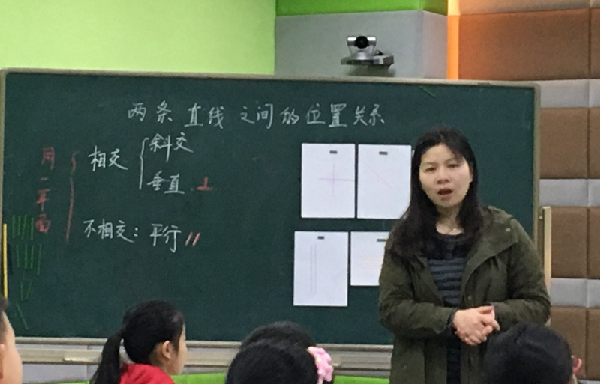 两条直线之间的位置关系
同一平面
相交
斜交
垂直 ⊥
不相交：平行 //